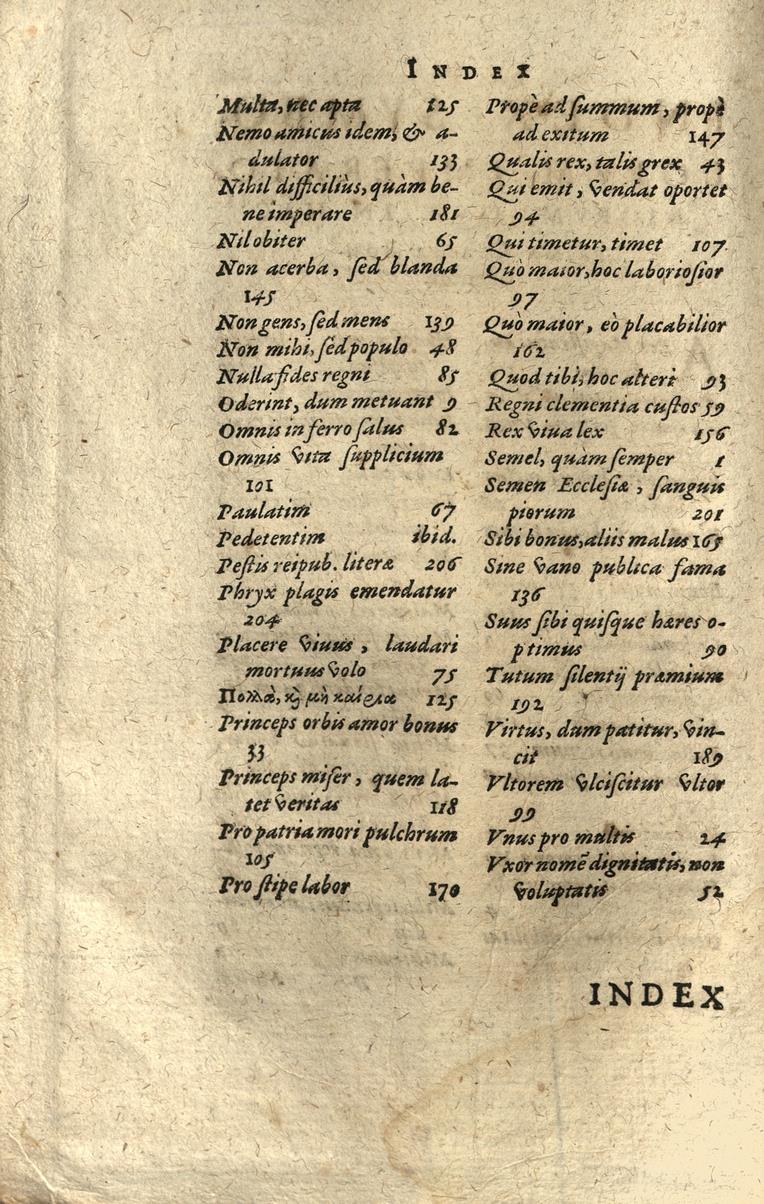 INDEX
Multa, nec apta 125
Nemo amicus idem, & a-
dulator 133
Nihil difficiliùs, quàm be-
ne imperare 181
Nil obiter 65
Non acerba, sed blanda
145
Non gens, sed mens 139
Non mihi, sed populo 48
Nulla fides regni 85
Oderint, dum metuant 9
Omnis in ferro salus 82
Omnis vita supplicium
101
Paulatim 67
Pedetentim ibid.
Pestis reipub. literæ 206
Phryx plagis emendatur
204
Placere viuus, laudari
mortuus volo 75
Πολλὰ, κὶ μὴ καίρια 125
Princeps orbis amor bonus
33
Princeps miser, quem la-
tet veritas 118
Pro patria mori pulchrum
105
Pro stipe labor 170
Propè ad summum, propè
ad exitum 147
Qualis rex, talis grex 43
Qui emit, vendat oportet
94
Qui timetur, timet 107
Quò maior, hoc laboriosior
97
Quò maior, eò placabilior
162
Quod tibi, hoc alteri 93
Regni clementia custos 59
Rex viua lex 156
Semel, quàm semper 1
Semen Ecclesiæ, sanguis
piorum 201
Sibi bonus, aliis malus 165
Sine vano publica fama
136
Suus sibi quisque hæres o-
ptimus 90
Tutum silentij præmium
192
Virtus, dum patitur, vin-
cit 189
Vltorem vlciscitur vltor
99
Vnus pro multis 24
Vxor nomẽ dignitatis, non
voluptatis 52
INDEX